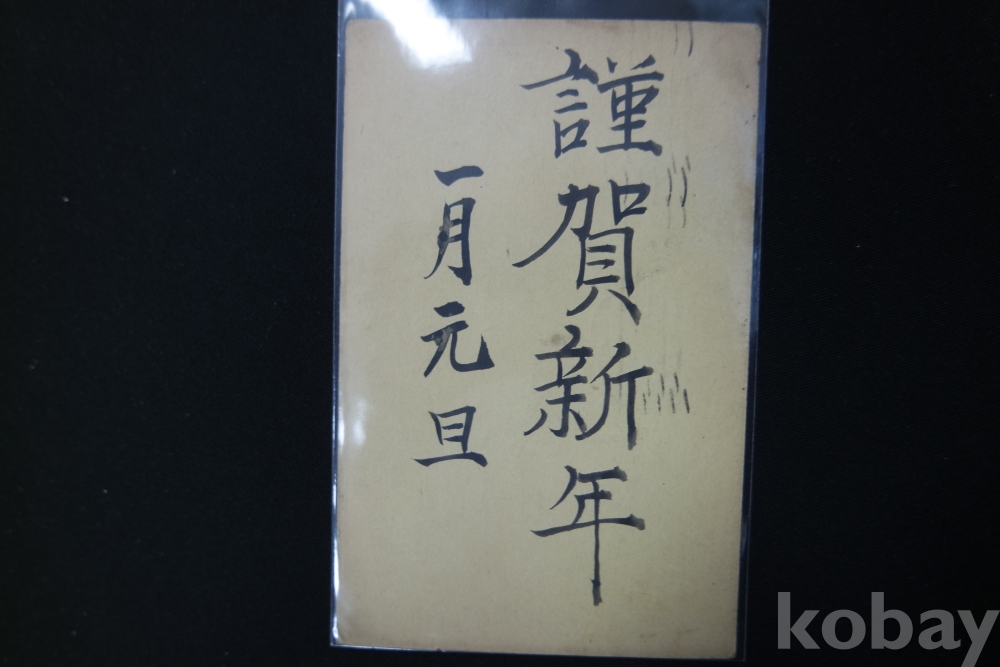 謹賀新年
一月元旦
kobay